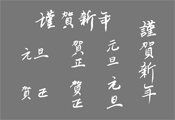 謹賀新年
元旦
賀正
元旦
賀正
賀正
元旦
謹賀新年